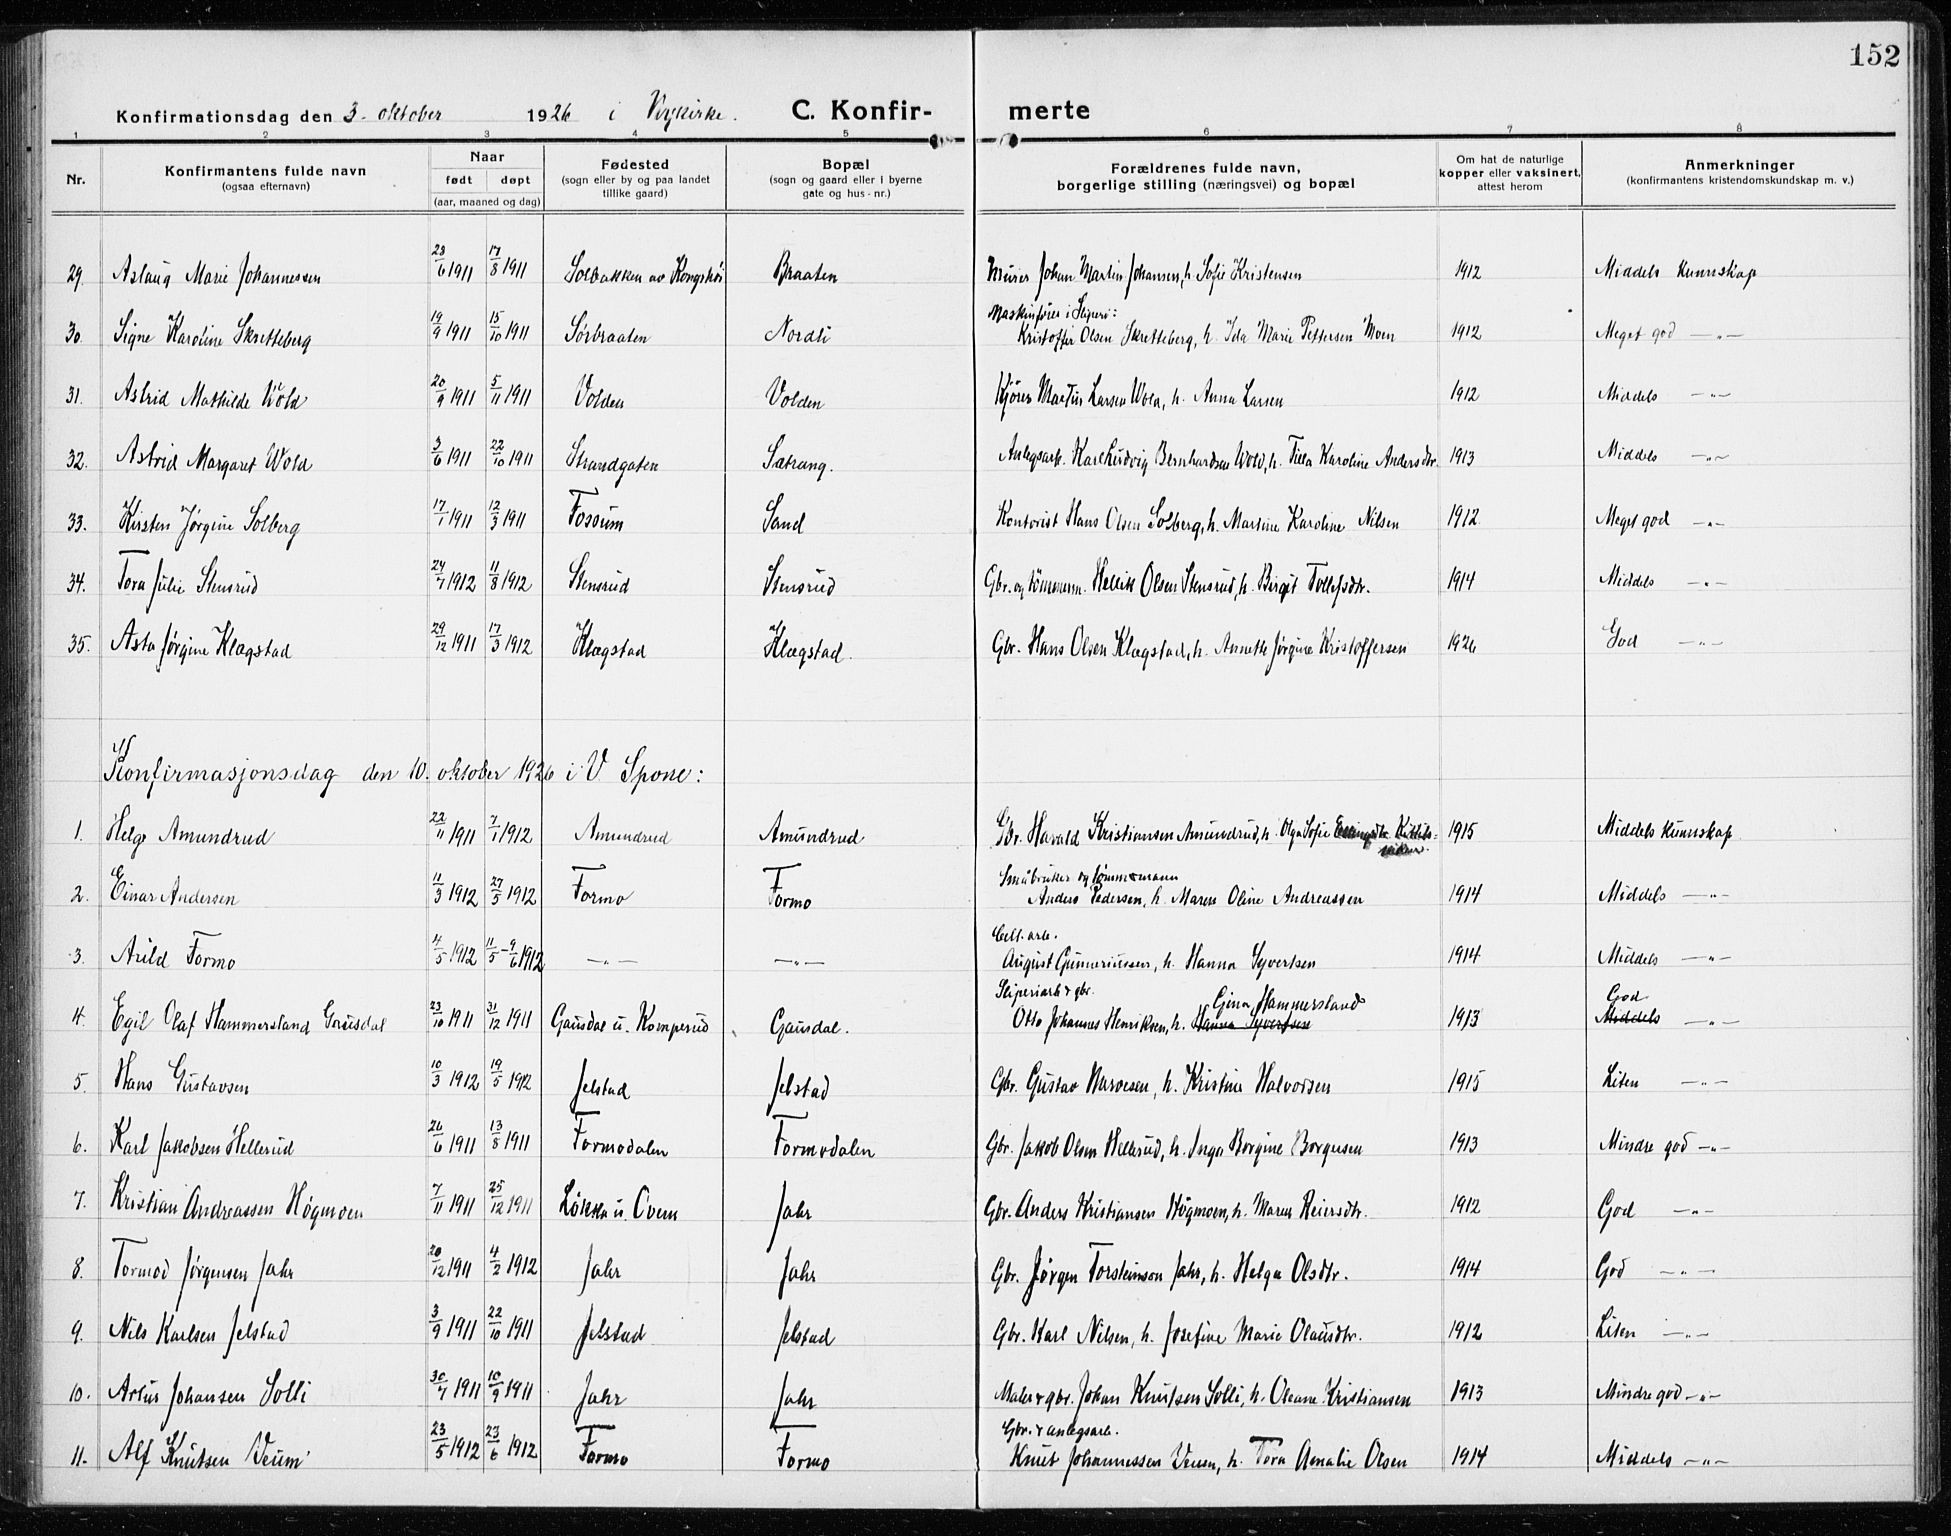 152
Konfirmationsdag den 3. oktober 1926 i Vikjkirke. C. Konfirmerte
1 2 3 4 5 6 7 8
Nr. Konfirmantens fulde navn (ogsaa efternavn) Naar født døpt (aar, maaned og dag) Fødested (sogn eller by og paa landet tillike gaard) Bopæl (sogn og gaard eller i byerne gate og hus-nr.) Forældrenes fulde navn, borgerlige stilling (næringsvei) og bopæl Om hat de naturlige kopper eller vaksinert, attest herom Anmerkninger (konfirmantens kristendomskundskap m. v.)
29. Aslaug Marie Johannessen 28/6 1911 17/8 1911 Solbakken av Kongshøi Braaten Murer Johan Martin Johansen, h. Sofie Kristensen 1912 Middels kunnskap
Maskinfører i Sliperi:
30. Signe Karoline Skretteberg 19/9 1911 15/10 1911 Sørbraaten Nordli Kristoffer Olsen Skretteberg, h. Ida Marie Pettersen Moen 1912 Meget god —"—
31. Astrid Mathilde Wold 20/9 1911 5/11 1911 Volden Volden Kjører Martin Larsen Wold, h. Anna Larsen 1912 Middels —"—
32. Astrid Margaret Wold 3/6 1911 22/10 1911 Strandgaten Sætrang. Anlegsarb. Karl Ludvig Bernhardsen Wold, h. Tilla Karoline Andersdtr. 1913 Middels —"—
33. Kirsten Jørgine Solberg 17/1 1911 12/3 1911 Fossum Sand Kontorist Hans Olsen Solberg, h. Martine Karoline Nilsen 1912 Meget god —"—
34. Tora Julie Stensrud 24/7 1912 11/8 1912 Stensrud Stensrud Gbr. og tømmerm. Hellik Olsen Stensrud, h. Birgit Tollefsdtr. 1914 Middels —"—
35. Asta Jørgine Klægstad 29/12 1911 17/3 1912 Klægstad Klægstad. Gbr. Hans Olsen Klægstad, h. Annette Jørgine Kristoffersen 1926 God —"—
Konfirmasjonsdag den 10. oktober 1926 i V. Spone:
1. Helge Amundrud 22/11 1911 7/1 1912 Amundrud Amundrud Gbr. Harald Kristiansen Amundrud, h. Olga Sofie Ellingsdtr. Kittils= 1915 Middels kunnskap.
viken.
Småbruker og tømmermann
2. Einar Andersen 11/3 1912 27/5 1912 Formo Formo Anders Pedersen, h. Maren Oline Andreassen 1914 Middels —"—
Cell. arb.
3. Arild Formo 4/5 1912 11/5 – 9/6 1912 —"— —"— August Gunneriussen, h. Hanna Syvertsen 1914 Middels —"—
Sliperiarb & gbr. Gina Hammersland God
4. Egil Olaf Hammersland Gausdal 23/10 1911 31/12 1911 Gausdal u. Komperud Gausdal. Otto Johannes Henriksen, h. Hanna Syvertsen 1913 Middels —"—
5. Hans Gustavsen 10/3 1912 19/5 1912 Jelstad Jelstad Gbr. Gustav Narvesen, h. Kristine Halvorsen 1915 Liten —"—
6. Karl Jakobsen Hellerud 26/6 1911 13/8 1911 Formodalen Formodalen Gbr. Jakob Olsen Hellerud, h. Inga Borgine Borgersen 1913 Mindre god —"—
7. Kristian Andreassen Høgmoen 7/11 1911 25/12 1911 Løkka u. Overn Jahr Gbr. Anders Kristiansen Høgmoen, h. Maren Reiersdtr. 1912 God —"—
8. Tormod Jørgensen Jahr 20/12 1911 4/2 1912 Jahr Jahr Gbr. Jørgen Torsteinson Jahr, h. Helga Olsdtr. 1914 God —"—
9. Nils Karlsen Jelstad 3/9 1911 22/10 1911 Jelstad Jelstad Gbr. Karl Nilsen, h. Josefine Marie Olausdtr. 1912 Liten —"—
10. Artur Johansen Solli 30/7 1911 10/9 1911 Jahr Jahr Maler & gbr. Johan Knutsen Solli, h. Oleane Kristiansen 1913 Mindre god —"—
Gbr. & anlegsarb.
11. Alf Knutsen Veum 23/5 1912 23/6 1912 Formo Formo Knut Johannessen Veum, h. Tora Amalie Olsen 1914 Middels —"—